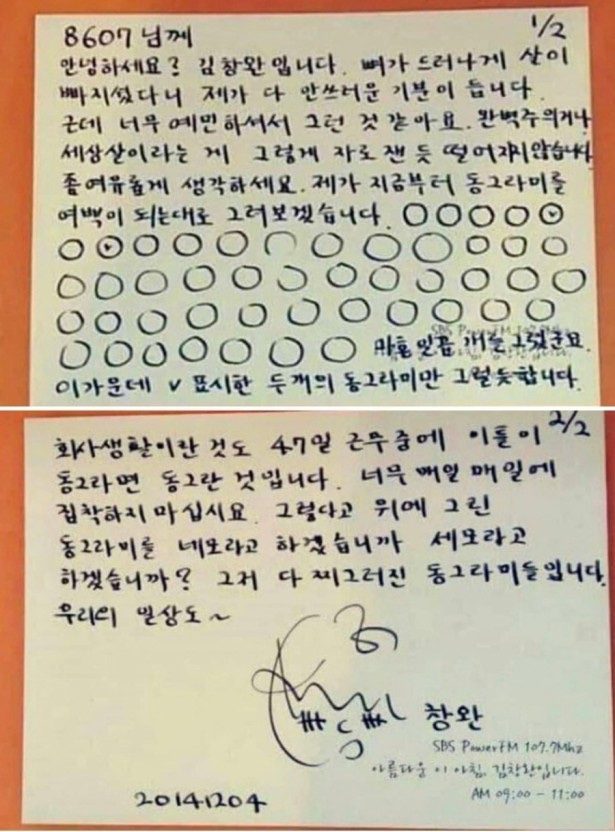 1/2
8607 님께
안녕하세요? 김창완 입니다. 뼈가 드러나게 살이
빠지셨다니 제가 다 안쓰러운 기분이 듭니다.
근데 너무 예민하셔서 그런 것 같아요. 완벽주의거나
세상살이라는 게 그렇게 자로 잰 듯 떨어지지않습니다
좀여유롭게 생각하세요. 제가 지금부터 동그라미를
여백이 되는대로 그려보겠습니다.
SBS PowerFM 107.7Mhz
마흔 일곱 개를 그렸군요.
이가운데 v 표시한 두개의 동그라미만 그럴듯합니다.
2/2
회사생활이란 것도 47일 근무중에 이틀이
동그라면 동그란 것입니다. 너무 매일 매일에
집착하지 마십시요. 그렇다고 위에 그린
동그라미를 네모라고 하겠습니까 세모라고
하겠습니까? 그저 다 찌그러진 동그라미들입니다.
우리의 일상도~
창완
SBS PowerFM 107.7Mhz
아름다운 이 아침, 김창완입니다.
AM 09:00 - 11:00
20141204